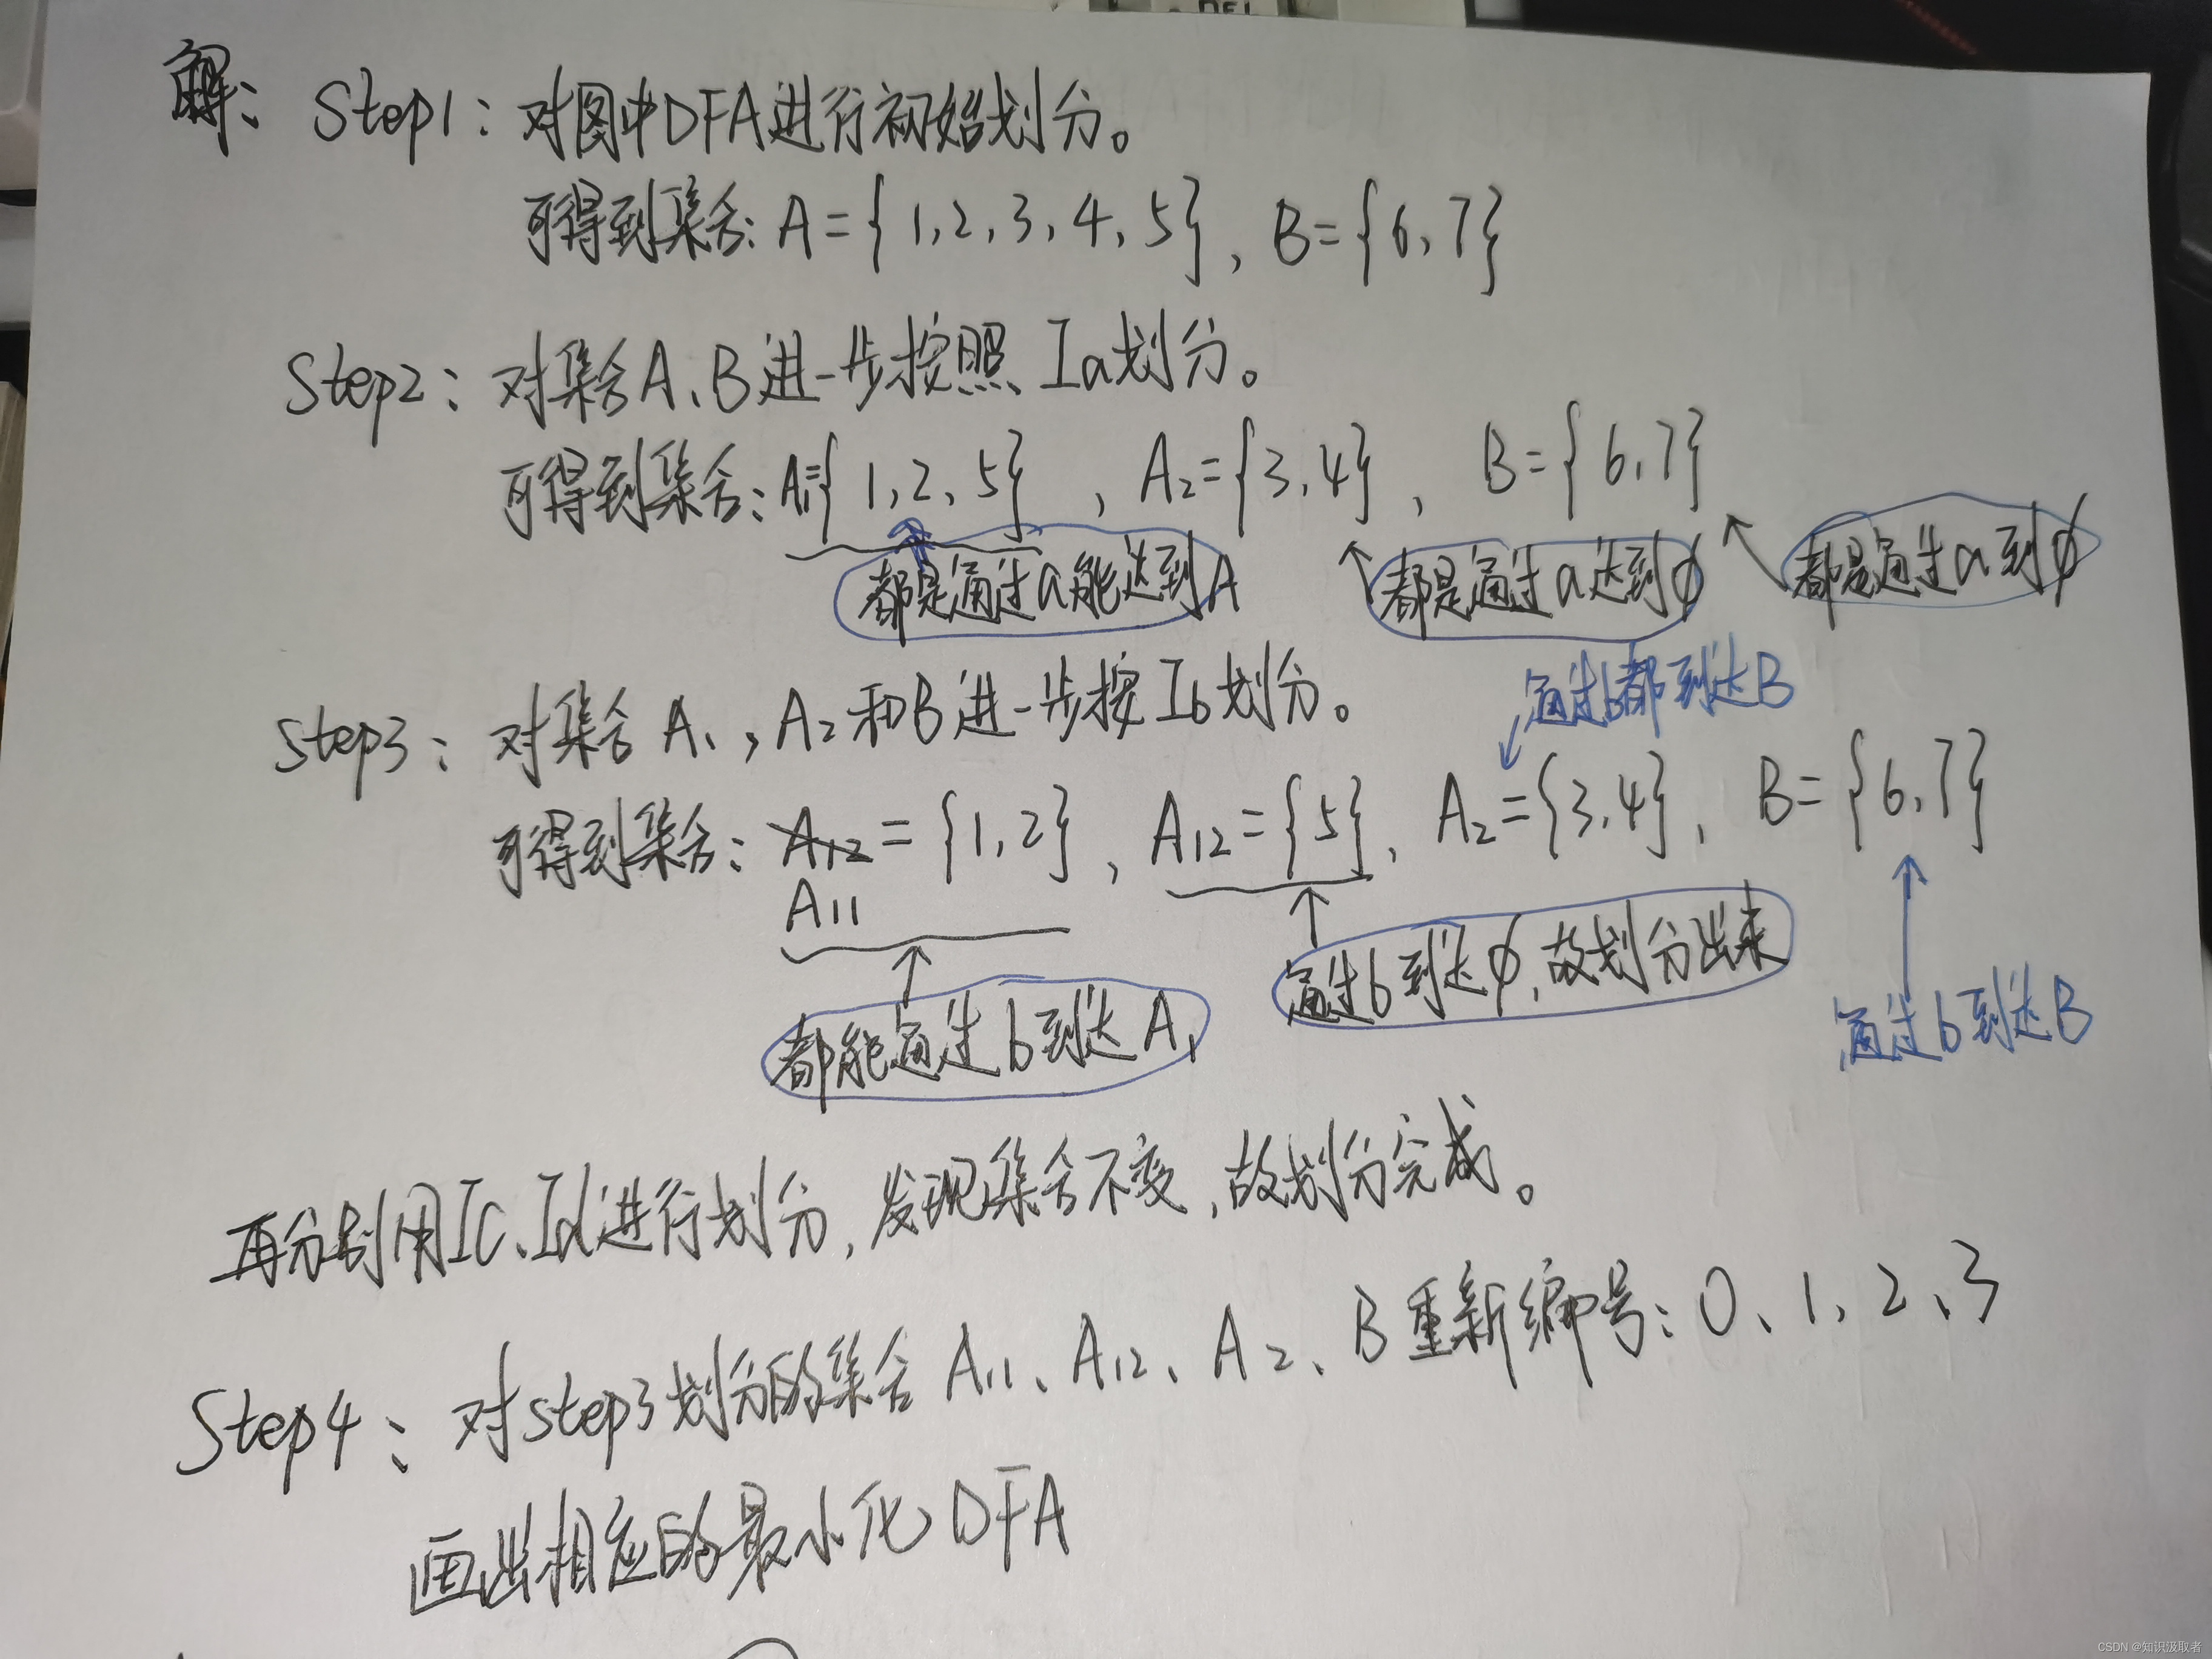 解：Step1：对图中DFA进行初始划分。
可得到集合：A={1,2,3,4,5}，B={6,7}
Step2：对集合A、B进一步按照Ia划分。
可得到集合：A1={1,2,5}，A2={3,4}，B={6,7}
都是通过a能达到A 都是通过a达到∅ 都是通过a到∅
通过b都到达B
Step3：对集合A1，A2和B进一步按Ib划分。
可得到集合：A12={1,2}，A12={5}，A2={3,4}，B={6,7}
A11
通过b到达∅，故划分出来
都能通过b到达A1
通过b到达B
再分别用Ic、Id进行划分，发现集合不变，故划分完成。
Step4：对step3划分的集合A11、A12、A2、B重新编号：0、1、2、3
画出相应的最小化DFA
CSDN @知识汲取者